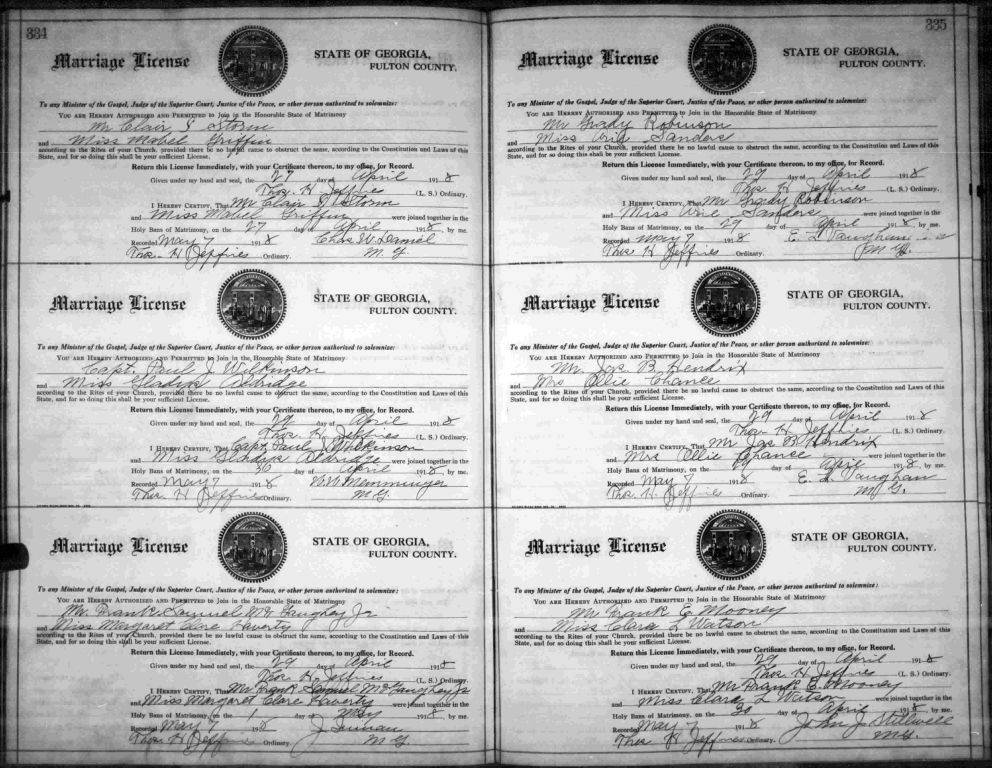 334
Marriage License
STATE OF GEORGIA,
FULTON COUNTY.
To any Minister of the Gospel, Judge of the Superior Court, Justice of the Peace, or other person authorized to solemnize:
YOU ARE HEREBY AUTHORIZED AND PERMITTED to Join in the Honorable State of Matrimony
Mr Clair J Storm
and Miss Mabel Griffin
according to the Rites of your Church, provided there be no lawful cause to obstruct the same, according to the Constitution and Laws of this
State, and for so doing this shall be your sufficient License.
Return this License Immediately, with your Certificate thereon, to my office, for Record.
Given under my hand and seal, the 27 day of April 1918
Thos. H Jeffries (L. S.) Ordinary.
I HEREBY CERTIFY, That Mr Clair J Storm
and Miss Mabel Griffin were joined together in the
Holy Bans of Matrimony, on the 27 day of April 1918, by me.
Recorded May 7 1918 Chas. W. Daniel
Thos. H Jeffries Ordinary. M. G.
Marriage License
STATE OF GEORGIA,
FULTON COUNTY.
To any Minister of the Gospel, Judge of the Superior Court, Justice of the Peace, or other person authorized to solemnize:
YOU ARE HEREBY AUTHORIZED AND PERMITTED to Join in the Honorable State of Matrimony
Capt. Paul J. Wilkinson
and Miss Gladys Aldridge
according to the Rites of your Church, provided there be no lawful cause to obstruct the same, according to the Constitution and Laws of this
State, and for so doing this shall be your sufficient License.
Return this License Immediately, with your Certificate thereon, to my office, for Record.
Given under my hand and seal, the 29 day of April 1918
Thos. H. Jeffries (L. S.) Ordinary.
I HEREBY CERTIFY, That Capt. Paul J Wilkinson
and Miss Gladys Aldridge were joined together in the
Holy Bans of Matrimony, on the 30 day of April 1918, by me.
Recorded May 7 1918 W. W. Memminger
Thos. H Jeffries Ordinary. M. G.
Marriage License
STATE OF GEORGIA,
FULTON COUNTY.
To any Minister of the Gospel, Judge of the Superior Court, Justice of the Peace, or other person authorized to solemnize:
YOU ARE HEREBY AUTHORIZED AND PERMITTED to Join in the Honorable State of Matrimony
Mr. Frank Samuel McGaughey Jr
and Miss Margaret Clare Haverty
according to the Rites of your Church, provided there be no lawful cause to obstruct the same, according to the Constitution and Laws of this
State, and for so doing this shall be your sufficient License.
Return this License Immediately, with your Certificate thereon, to my office, for Record.
Given under my hand and seal, the 29 day of April 1918
Thos H Jeffries (L. S.) Ordinary.
I HEREBY CERTIFY, That Mr Frank Samuel McGaughey Jr
and Miss Margaret Clare Haverty were joined together in the
Holy Bans of Matrimony, on the 1 day of May 1918, by me.
Recorded May 7 1918 J
Thos H Jeffries Ordinary. M. G.
335
Marriage License
STATE OF GEORGIA,
FULTON COUNTY.
To any Minister of the Gospel, Judge of the Superior Court, Justice of the Peace, or other person authorized to solemnize:
YOU ARE HEREBY AUTHORIZED AND PERMITTED to Join in the Honorable State of Matrimony
Mr Grady Robinson
and Miss Sanders
according to the Rites of your Church, provided there be no lawful cause to obstruct the same, according to the Constitution and Laws of this
State, and for so doing this shall be your sufficient License.
Return this License Immediately, with your Certificate thereon, to my office, for Record.
Given under my hand and seal, the 29 day of April 1918
Thos H Jeffries (L. S.) Ordinary.
I HEREBY CERTIFY, That Mr Grady Robinson
and Miss Sanders were joined together in the
Holy Bans of Matrimony, on the 29 day of April 1918, by me.
Recorded May 7 1918 E. L. Vaughan
Thos. H Jeffries Ordinary. M. G.
Marriage License
STATE OF GEORGIA,
FULTON COUNTY.
To any Minister of the Gospel, Judge of the Superior Court, Justice of the Peace, or other person authorized to solemnize:
YOU ARE HEREBY AUTHORIZED AND PERMITTED to Join in the Honorable State of Matrimony
Mr. Jas B. Hendrix
and Mrs Ollie Chance
according to the Rites of your Church, provided there be no lawful cause to obstruct the same, according to the Constitution and Laws of this
State, and for so doing this shall be your sufficient License.
Return this License Immediately, with your Certificate thereon, to my office, for Record.
Given under my hand and seal, the 29 day of April 1918
Thos H Jeffries (L. S.) Ordinary.
I HEREBY CERTIFY, That Mr Jas B Hendrix
and Mrs Ollie Chance were joined together in the
Holy Bans of Matrimony, on the 29 day of April 1918, by me.
Recorded May 7 1918 E. L. Vaughan
Thos. H. Jeffries Ordinary. M. G.
Marriage License
STATE OF GEORGIA,
FULTON COUNTY.
To any Minister of the Gospel, Judge of the Superior Court, Justice of the Peace, or other person authorized to solemnize:
YOU ARE HEREBY AUTHORIZED AND PERMITTED to Join in the Honorable State of Matrimony
Mr Frank E Mooney
and Miss Clara L Watson
according to the Rites of your Church, provided there be no lawful cause to obstruct the same, according to the Constitution and Laws of this
State, and for so doing this shall be your sufficient License.
Return this License Immediately, with your Certificate thereon, to my office, for Record.
Given under my hand and seal, the 29 day of April 1918
Thos H Jeffries (L. S.) Ordinary.
I HEREBY CERTIFY, That Mr Frank E. Mooney
and Miss Clara L Watson were joined together in the
Holy Bans of Matrimony, on the 30 day of April 1918, by me.
Recorded May 7 1918 John J Stillwell
Thos H Jeffries Ordinary. M. G.